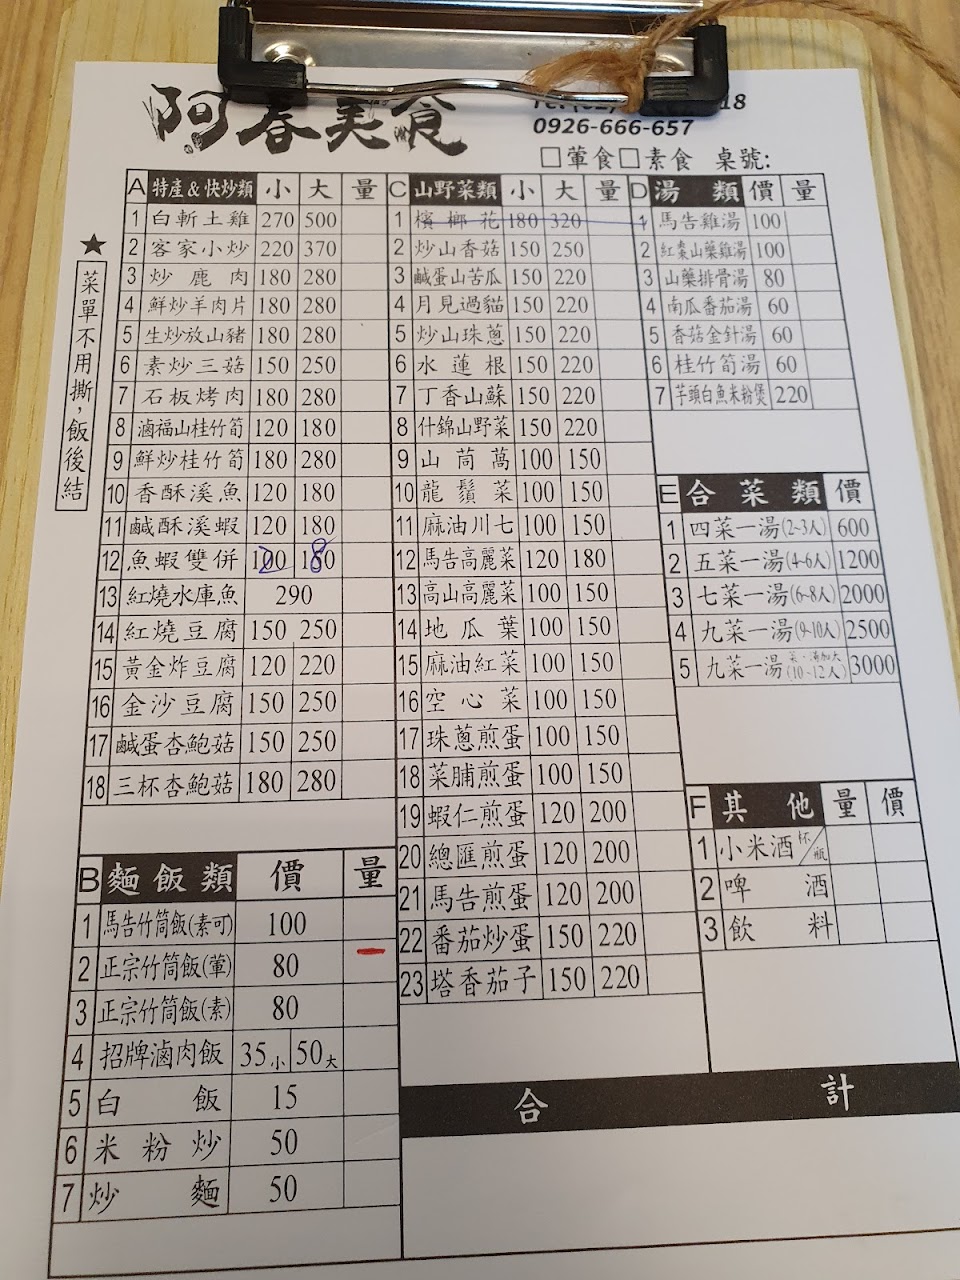 阿春美食
18
0926-666-657
□葷食□素食 桌號:
★菜單不用撕，飯後結
A 特產&快炒類 小 大 量
1 白斬土雞 270 500
2 客家小炒 220 370
3 炒鹿肉 180 280
4 鮮炒羊肉片 180 280
5 生炒放山豬 180 280
6 素炒三菇 150 250
7 石板烤肉 180 280
8 滷福山桂竹筍 120 180
9 鮮炒桂竹筍 180 280
10 香酥溪魚 120 180
11 鹹酥溪蝦 120 180
12 魚蝦雙併
13 紅燒水庫魚 290
14 紅燒豆腐 150 250
15 黃金炸豆腐 120 220
16 金沙豆腐 150 250
17 鹹蛋杏鮑菇 150 250
18 三杯杏鮑菇 180 280
B 麵飯類 價 量
1 馬告竹筒飯(素可) 100
2 正宗竹筒飯(葷) 80
3 正宗竹筒飯(素) 80
4 招牌滷肉飯 35小 50大
5 白飯 15
6 米粉炒 50
7 炒麵 50
C 山野菜類 小 大 量
1 檳榔花 180 320
2 炒山香菇 150 250
3 鹹蛋山苦瓜 150 220
4 月見過貓 150 220
5 炒山珠蔥 150 220
6 水蓮根 150 220
7 丁香山蘇 150 220
8 什錦山野菜 150 220
9 山茼萵 100 150
10 龍鬚菜 100 150
11 麻油川七 100 150
12 馬告高麗菜 120 180
13 高山高麗菜 100 150
14 地瓜葉 100 150
15 麻油紅菜 100 150
16 空心菜 100 150
17 珠蔥煎蛋 100 150
18 菜脯煎蛋 100 150
19 蝦仁煎蛋 120 200
20 總匯煎蛋 120 200
21 馬告煎蛋 120 200
22 番茄炒蛋 150 220
23 塔香茄子 150 220
D 湯類 價 量
1 馬告雞湯 100
2 紅棗山藥雞湯 100
3 山藥排骨湯 80
4 南瓜番茄湯 60
5 香菇金針湯 60
6 桂竹筍湯 60
7 芋頭白魚米粉煲 220
E 合菜類 價
1 四菜一湯(2~3人) 600
2 五菜一湯(4~6人) 1200
3 七菜一湯(6~8人) 2000
4 九菜一湯(9~10人) 2500
5 九菜一湯 菜、湯加大(10~12人) 3000
F 其他 量 價
1 小米酒 杯/瓶
2 啤酒
3 飲料
合計